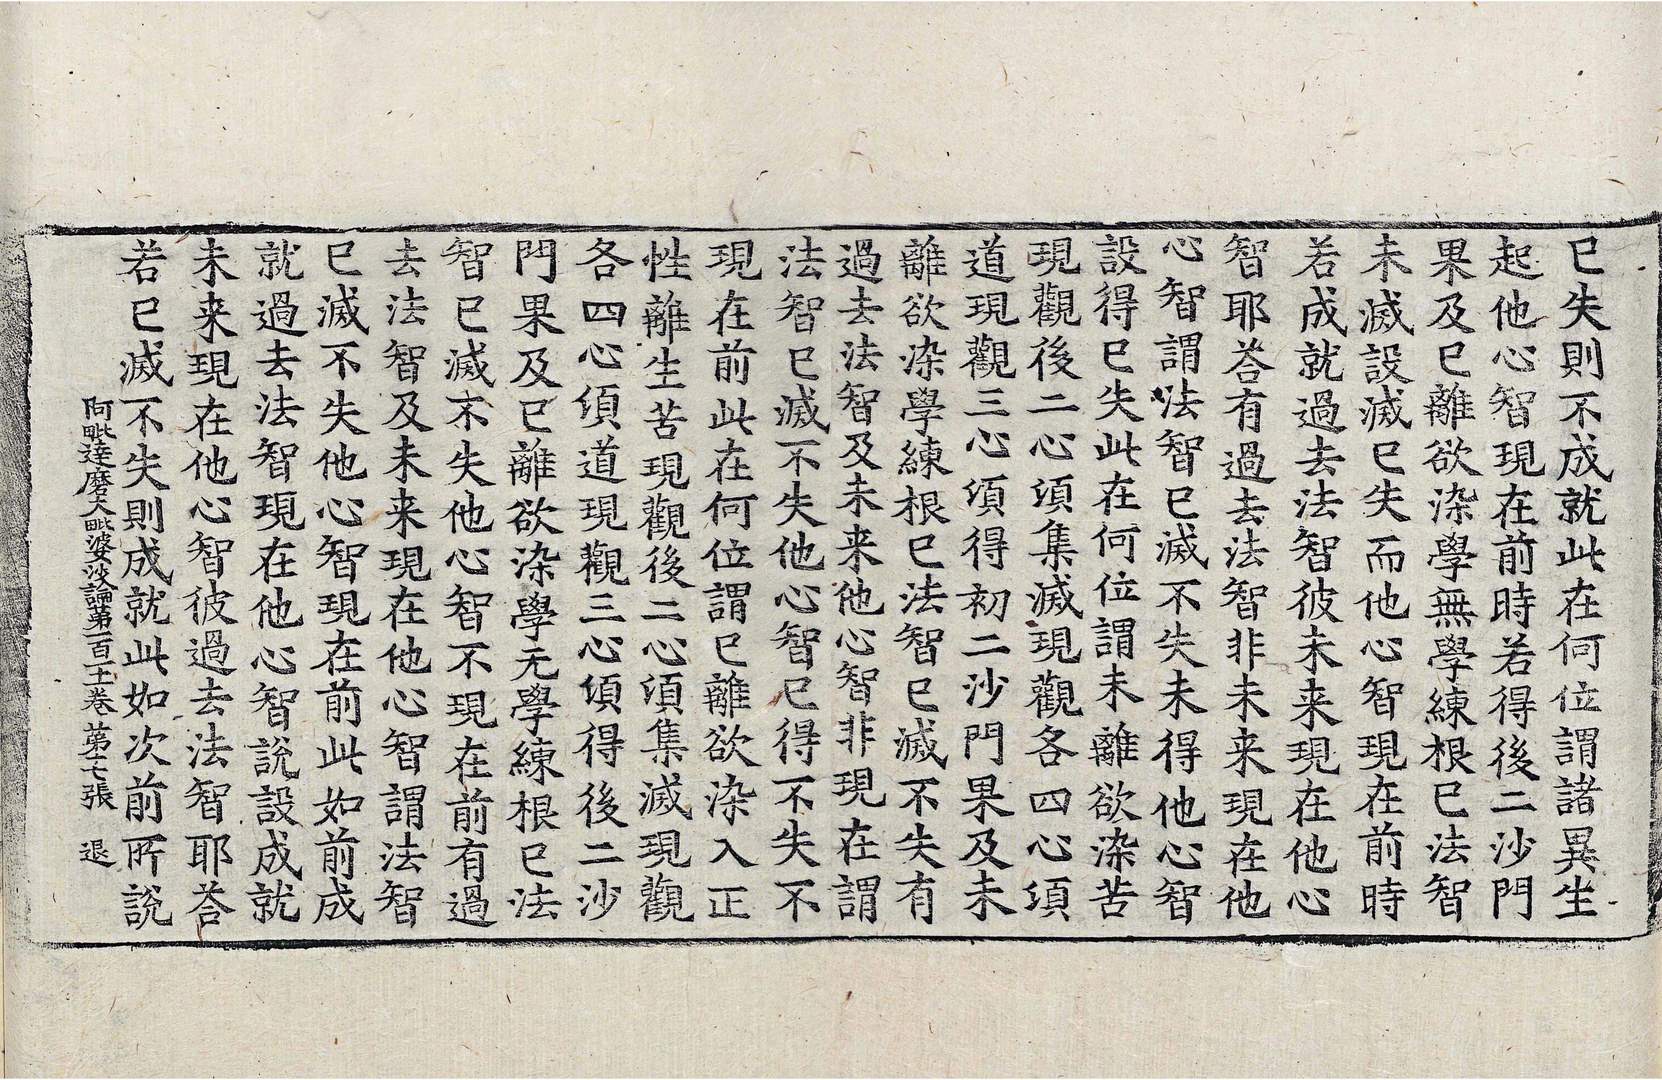 已失則不成就此在何位謂諸異生
起他心智現在前時若得後二沙門
果及已離欲染學無學練根已法智
未滅設滅已失而他心智現在前時
若成就過去法智彼未来現在他心
智耶荅有過去法智非未来現在他
心智謂法智已滅不失未得他心智
設得已失此在何位謂未離欲染苦
現觀後二心湏集滅現觀各四心湏
道現觀三心湏得初二沙門果及未
離欲染學練根已法智已滅不失有
過去法智及未来他心智非現在謂
法智已滅不失他心智已得不失不
現在前此在何位謂已離欲染入正
性離生苦現觀後二心湏集滅現觀
各四心湏道現觀三心湏得後二沙
門果及已離欲染學无學練根已法
智已滅不失他心智不現在前有過
去法智及未来現在他心智謂法智
已滅不失他心智現在前此如前成
就過去法智現在他心智說設成就
未来現在他心智彼過去法智耶荅
若已滅不失則成就此如次前所說
阿毗達磨大毗婆沙論第一百十卷 第七張 退